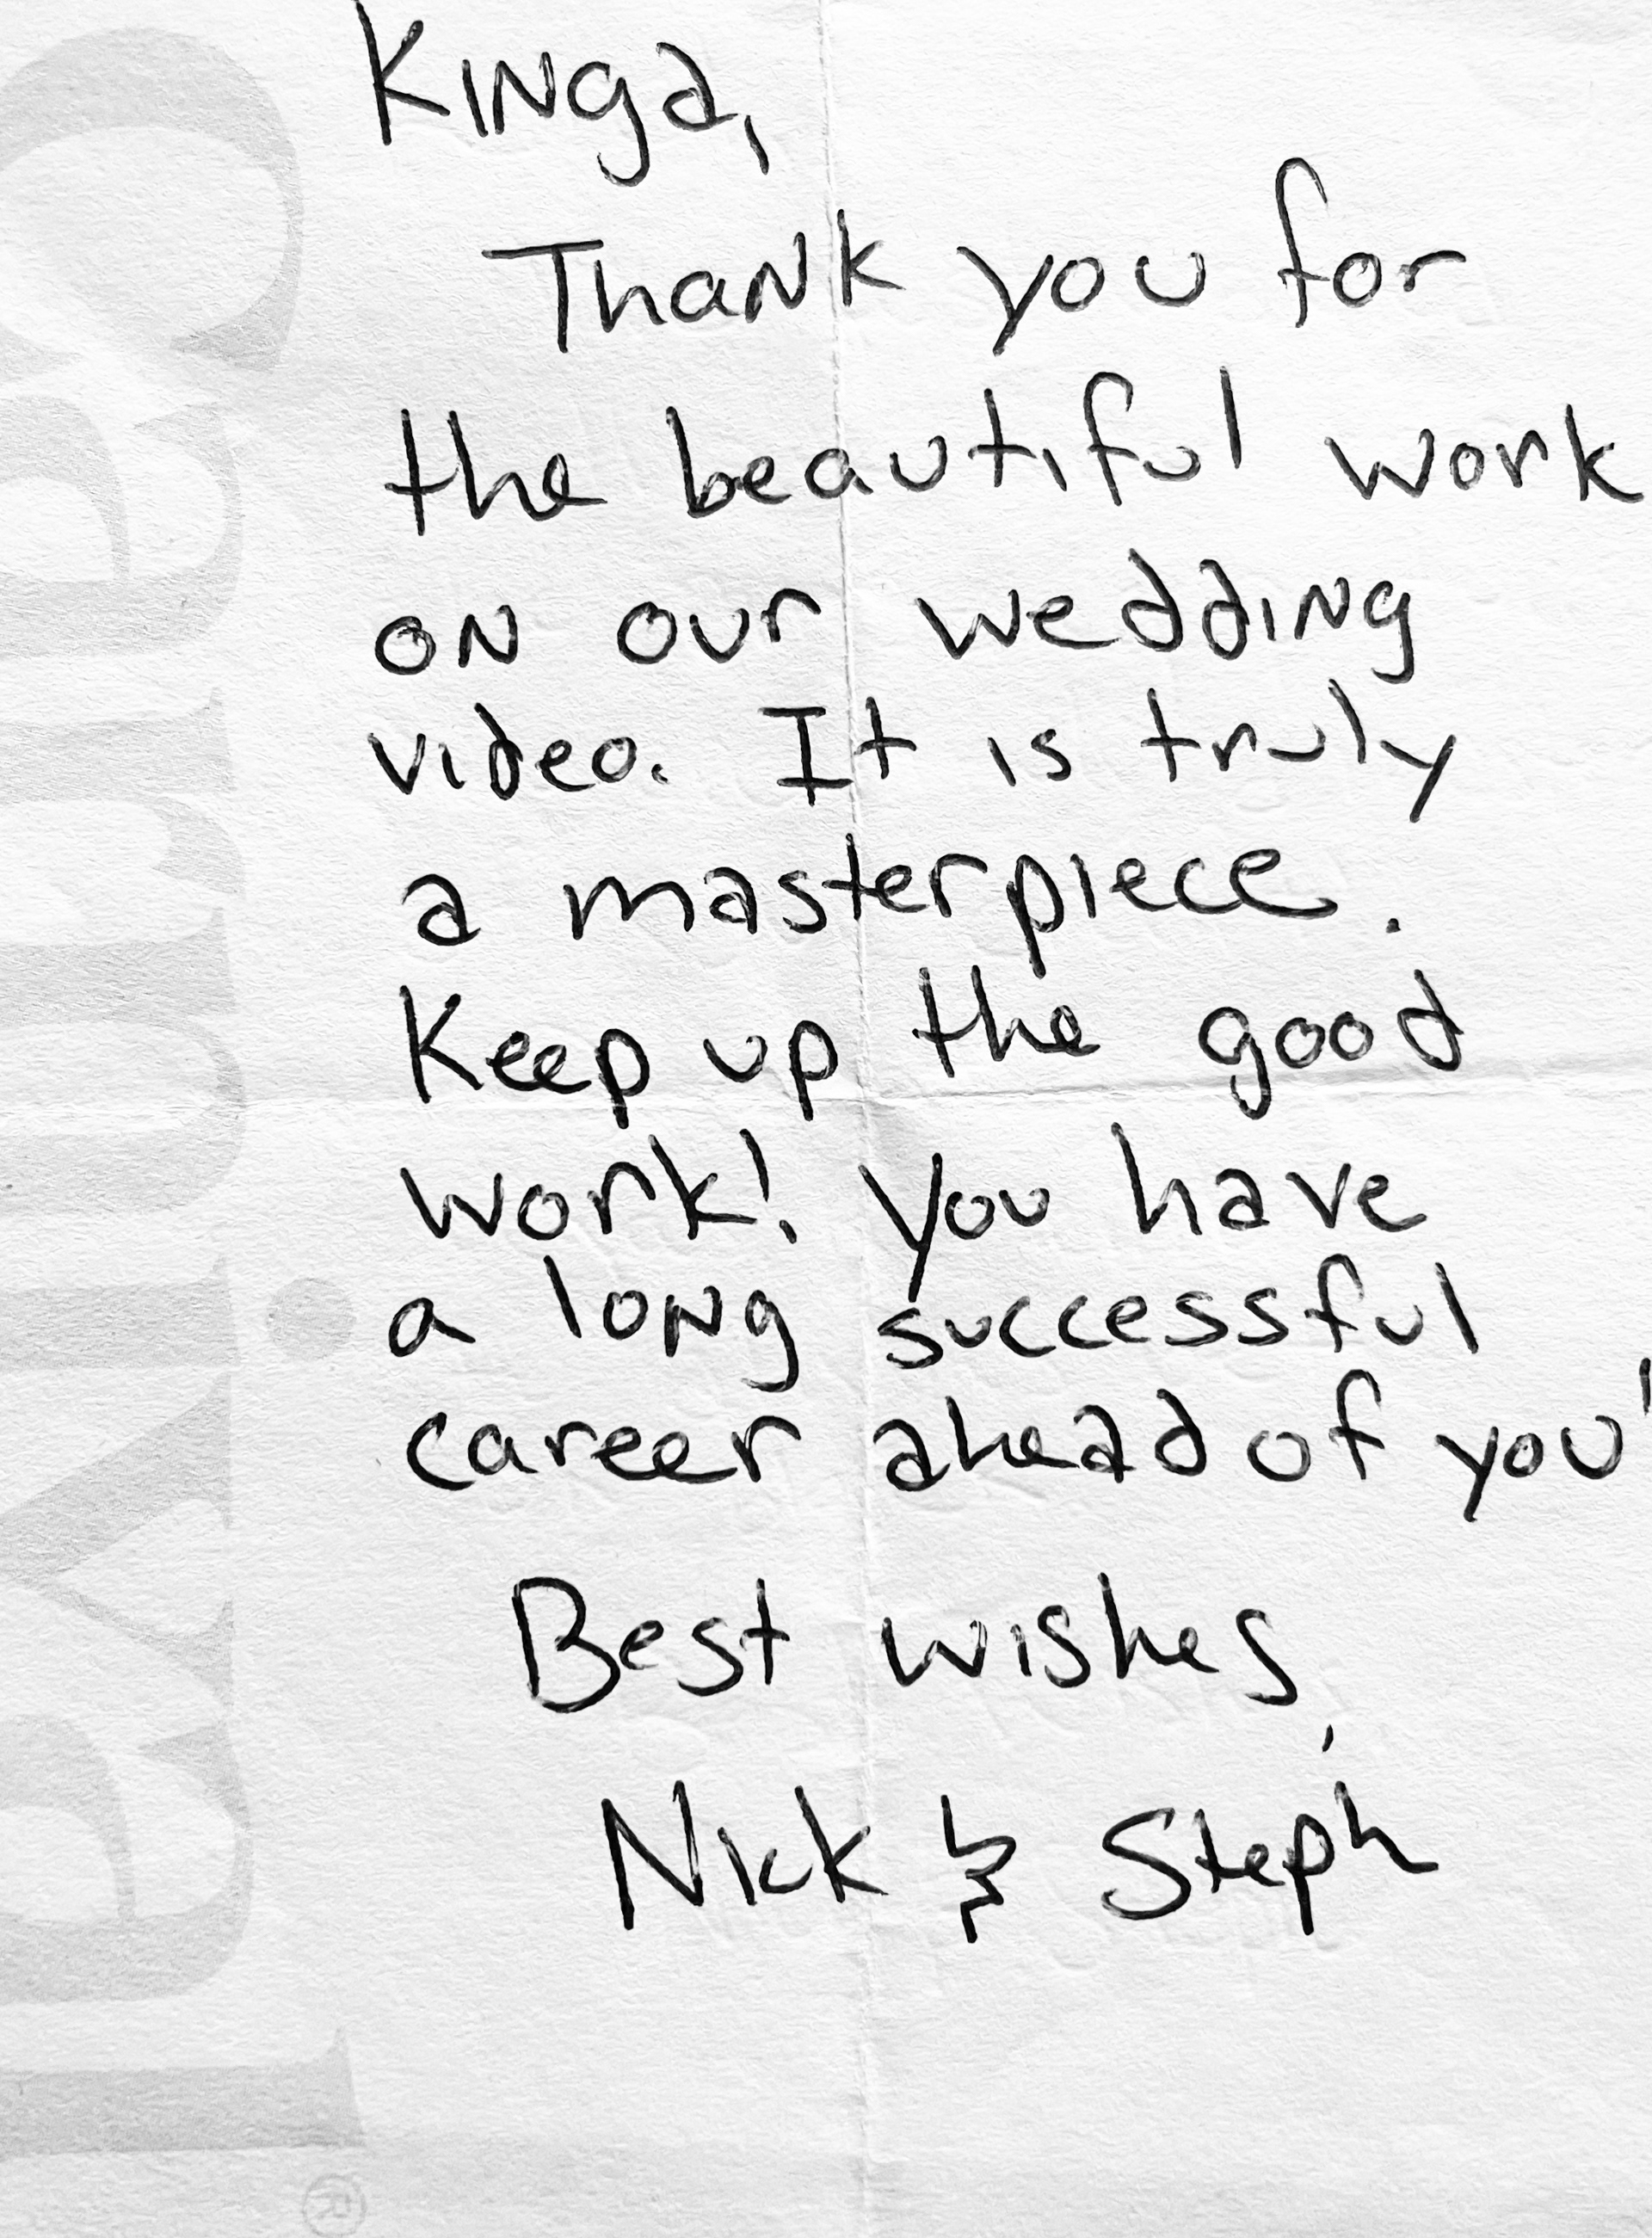 Kinga,
Thank you for
the beautiful work
on our wedding
video. It is truly
a masterpiece.
Keep up the good
work! You have
a long successful
career ahead of you!
Best wishes,
Nick & Steph
®